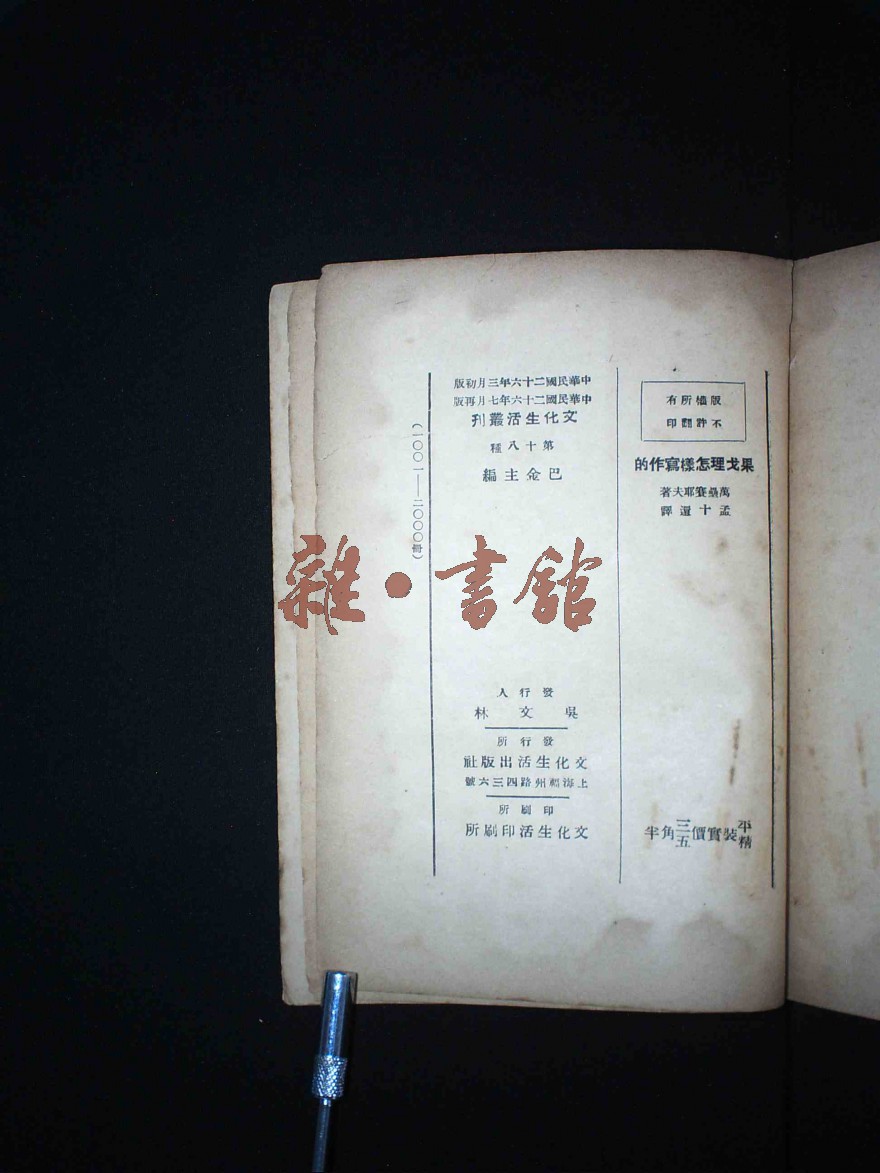 版權所有
不許翻印
果戈理怎樣寫作的
萬壘賽耶夫著
孟十還譯
平精裝實價三五角半
中華民國二十六年三月初版
中華民國二十六年七月再版
文化生活叢刊
第十八種
巴金主編
發行人
吳文林
發行所
文化生活出版社
上海福州路四三六號
印刷所
文化生活印刷所
(一〇〇一—二〇〇〇冊)
雜·書館